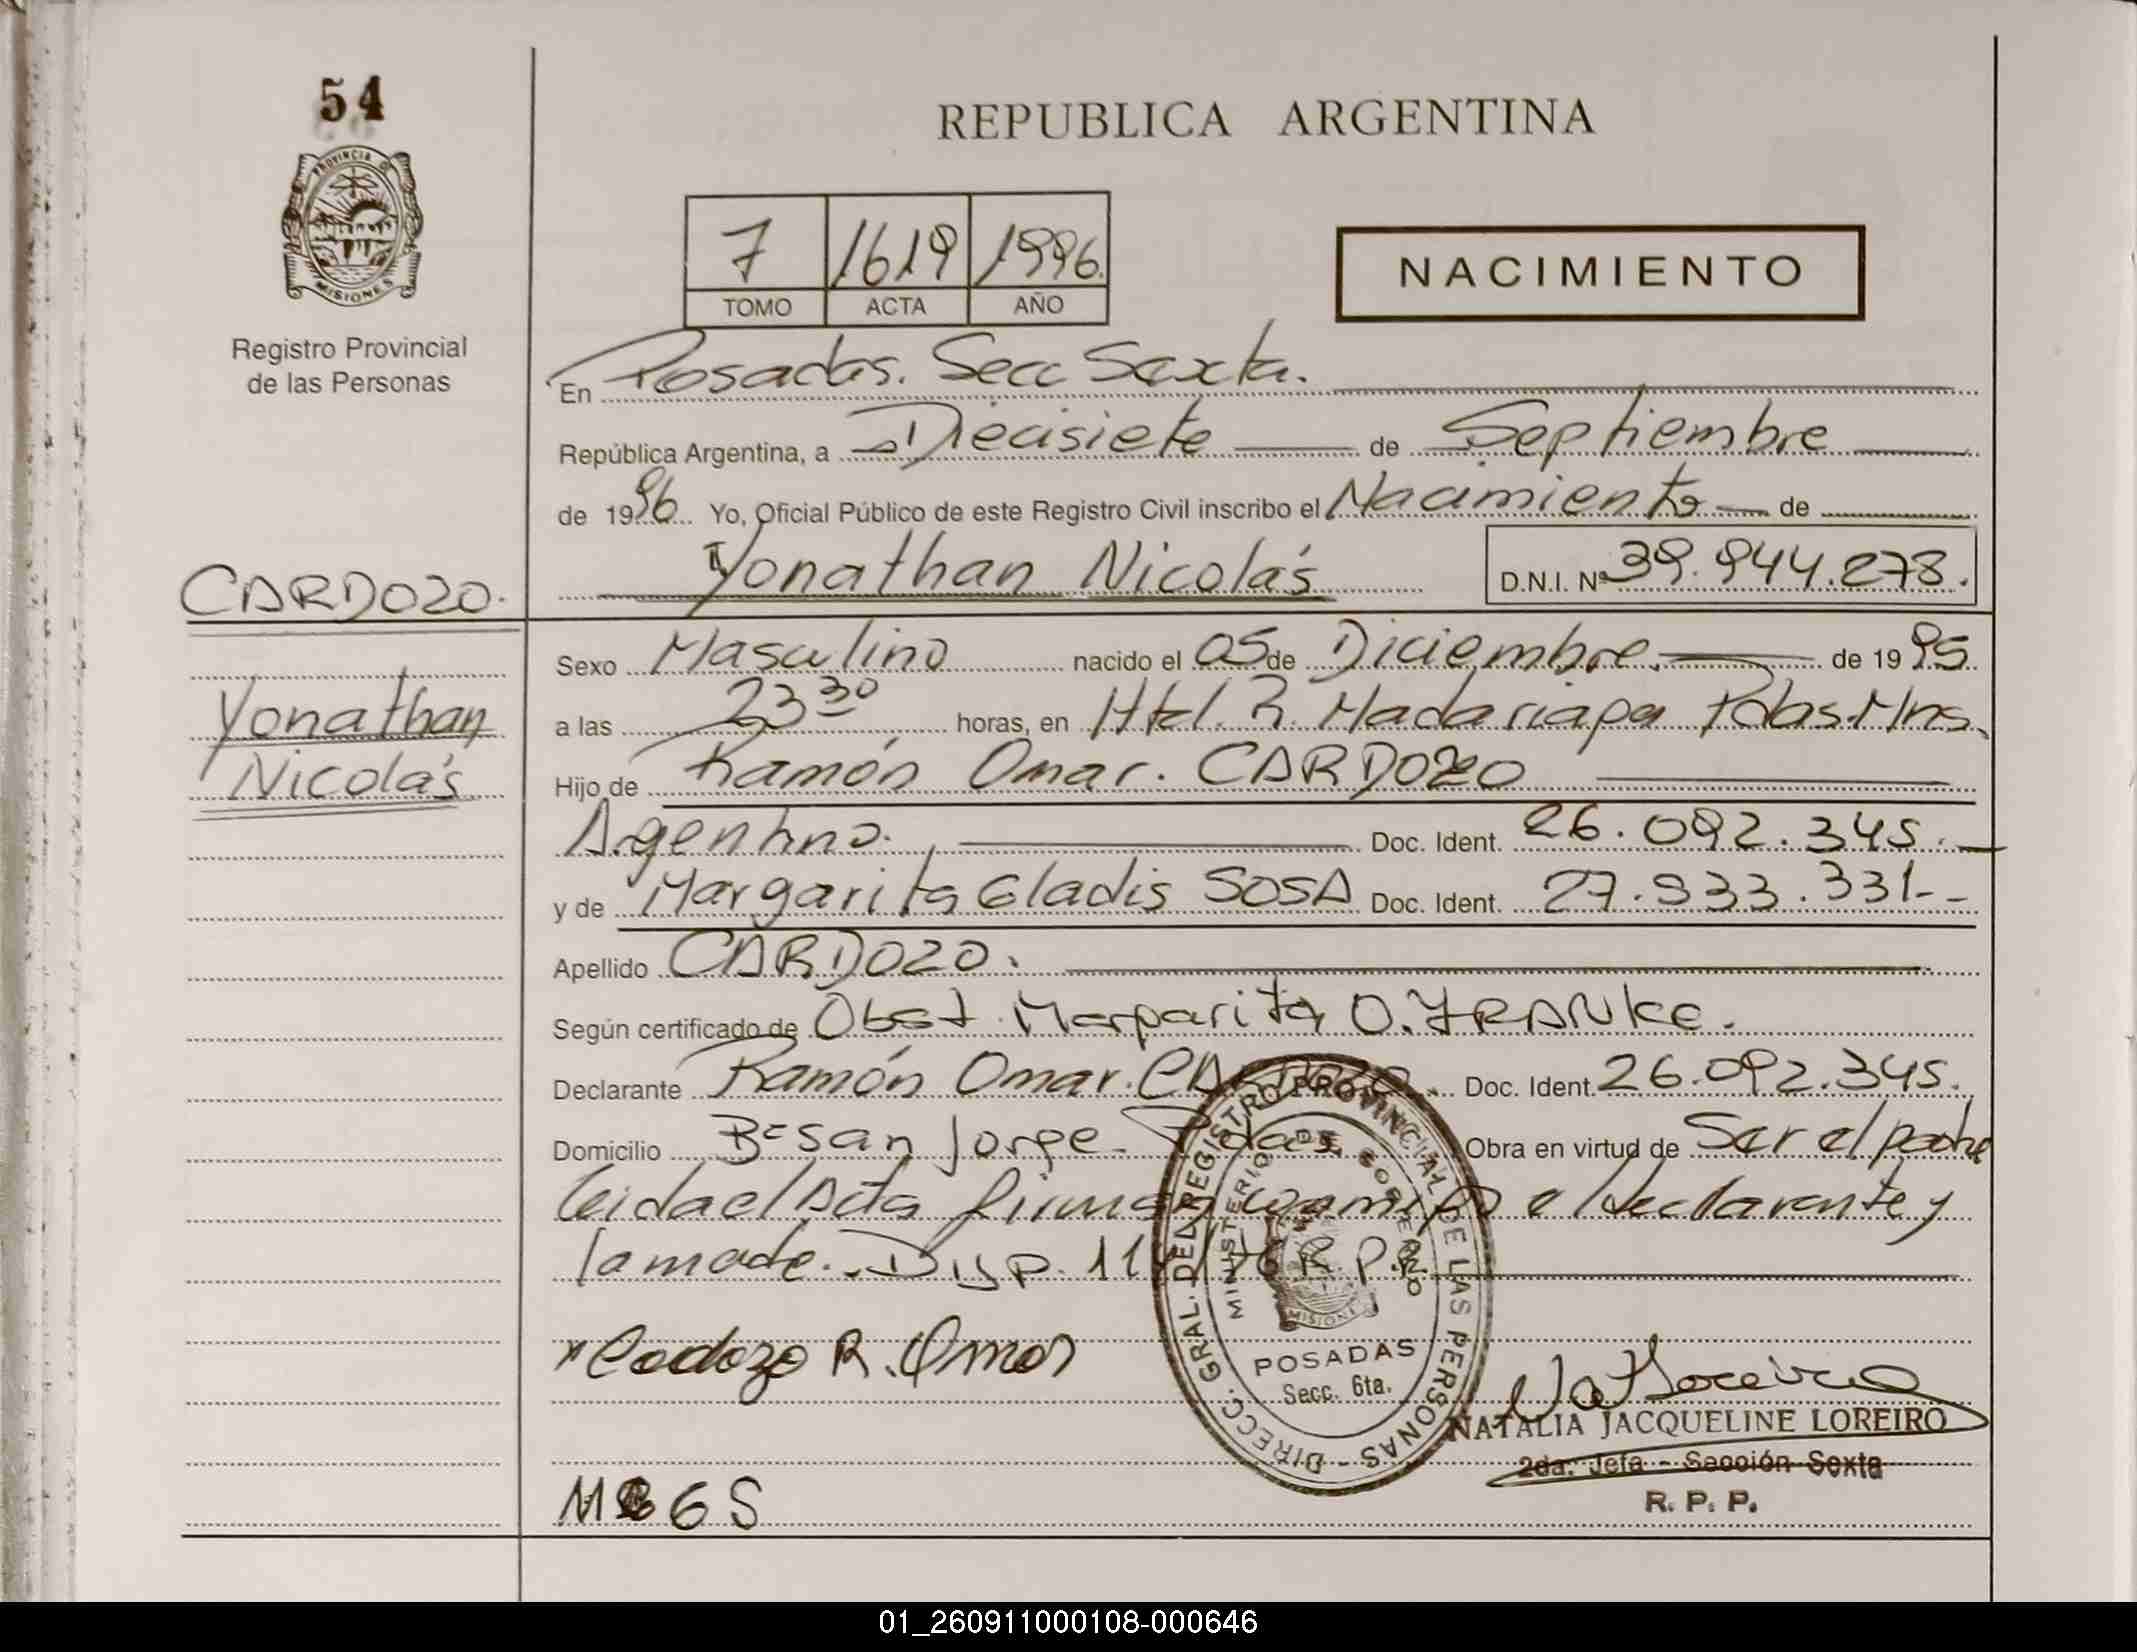 54
PROVINCIA D MISIONES
Registro Provincial
de las Personas
REPUBLICA ARGENTINA
7 1619 1996.
TOMO ACTA AÑO
NACIMIENTO
En Posadas. Secc Sexta.
República Argentina, a Diecisiete de Septiembre
de 1996 Yo, Oficial Público de este Registro Civil inscribo el Nacimiento de
Yonathan Nicolás D.N.I. Nº 39.944.278.
CARDOZO.
Yonathan
Nicolás
Sexo Masculino nacido el 05 de Diciembre. de 1995
a las 23 30 horas, en Htal. R. Madariaga Pdas. Mns.
Hijo de Ramón Omar. CARDOZO
Argentino. Doc. Ident. 26.092.345.
y de Margarita Gladis SOSA Doc. Ident. 27.933.331-
Apellido CARDOZO.
Según certificado de Obst. Margarita O. FRANKe.
Declarante Ramón Omar. CARDOZO. Doc. Ident. 26.092.345.
Domicilio Bº San Jorge. Pdas. Obra en virtud de Ser el padre
Leida el Acta firman conmigo el declarante y
la madre. Disp. R.P.P.
Cardozo R. Omar
DIRECC. GRAL. DEL REGISTRO PROVINCIAL DE LAS PERSONAS -
MINISTERIO DE GOBIERNO
MISIONES
POSADAS
Secc. 6ta.
NATALIA JACQUELINE LOREIRO
2da. Jefa - Sección Sexta
R. P. P.
M G S
01_260911000108-000646